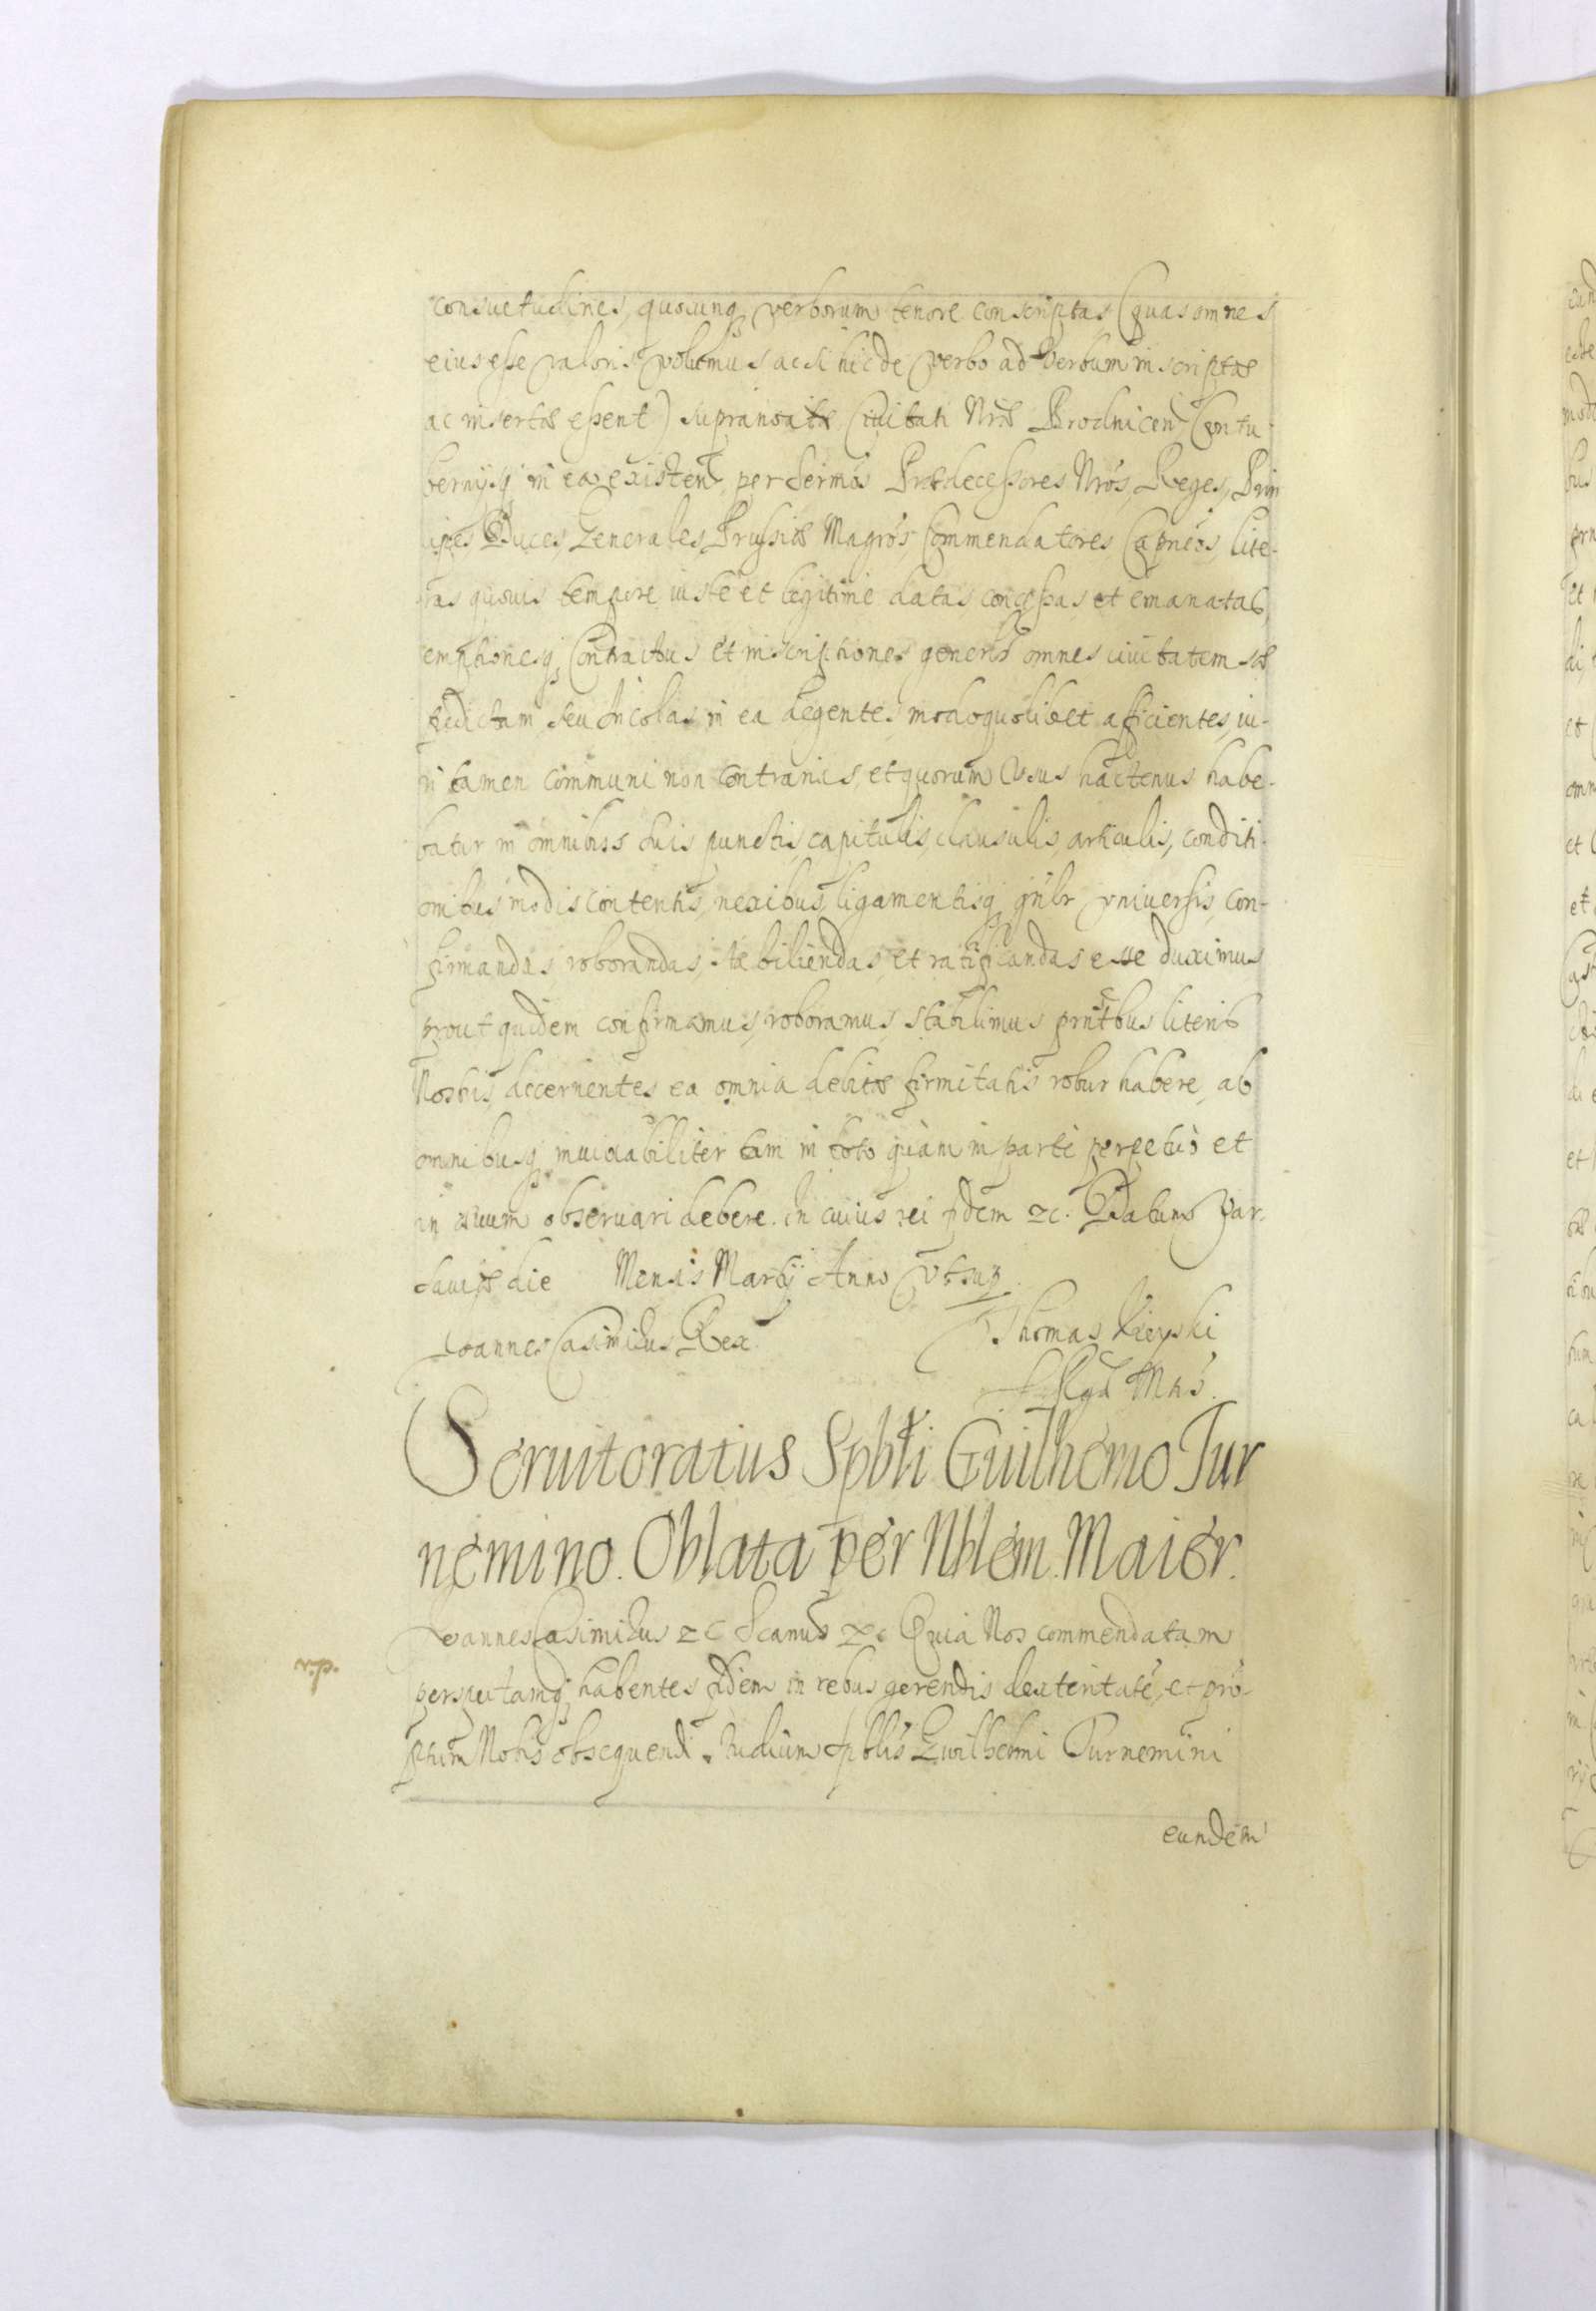 consuetudines, quocunq verborum tenore conscriptas (quas omnes
eius esse valoris volumus ac si hic de verbo ad verbum inscriptæ
ac insertæ essent) supranotatæ Civitati Nræ Brodnicen Contu-
bernijsq in ea existen, per Sermos Prædecessores Nros, Reges, Prin
cipes Duces Generales Prussiæ Magros, Commendatores, Capneos, lite-
ras quovis tempore iuste et legitime datas concessas et emanatas,
emptionesq, Contractus et inscriptiones generlr omnes civitatem præ
fedictam seu Incolas in ea degentes modoquolibet afficientes, iu-
ri tamen communi non contrarias, et quorum Usus hactenus habe-
batur in omnibus suis punctis, capitulis, clausulis, articulis, conditi-
onibus modis contentis, nexibus, ligamentisq gnlr universis, con-
firmandas, roborandas, stabiliendas et ratificandas esse duximus
prout quidem confirmamus, roboramus stabilimus prntbus literis
Nostris, decernentes ea omnia debitæ firmitatis robur habere, ab
omnibusq inviolabiliter tam in toto quàm in parte perpetuò et
in ævum observari debere. In cuius rei fidem &c. Datum Var-
saviæ die Mensis Martij Anno Utsup
Ioannes Casimirus Rex. Thomas Uieyski
Rgni Mtis.
Servitoratus Spbli Guilhemo Tur
nemino. Oblata per Nblem. Maier.
Ioannes Casimirus &c Scanus &c Quia Nos commendatam
r.p.
perspectamq habentes fidem in rebus gerendis dexteritate, et pro-
ptum Nobis obsequendi studium spblis Guilhelmi Turnemini
eundem